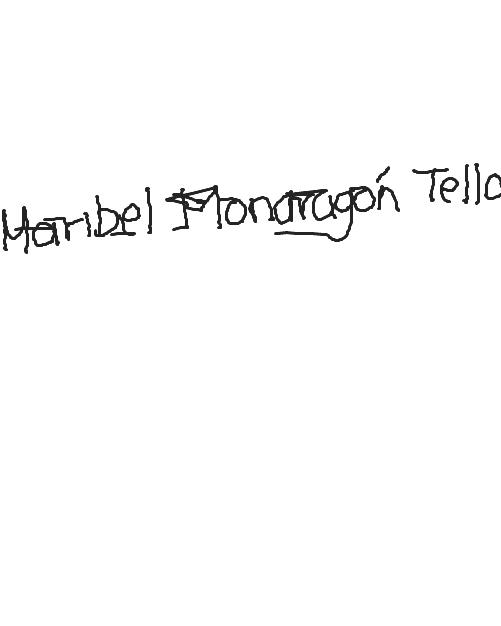 Maribel Monaragón Tello